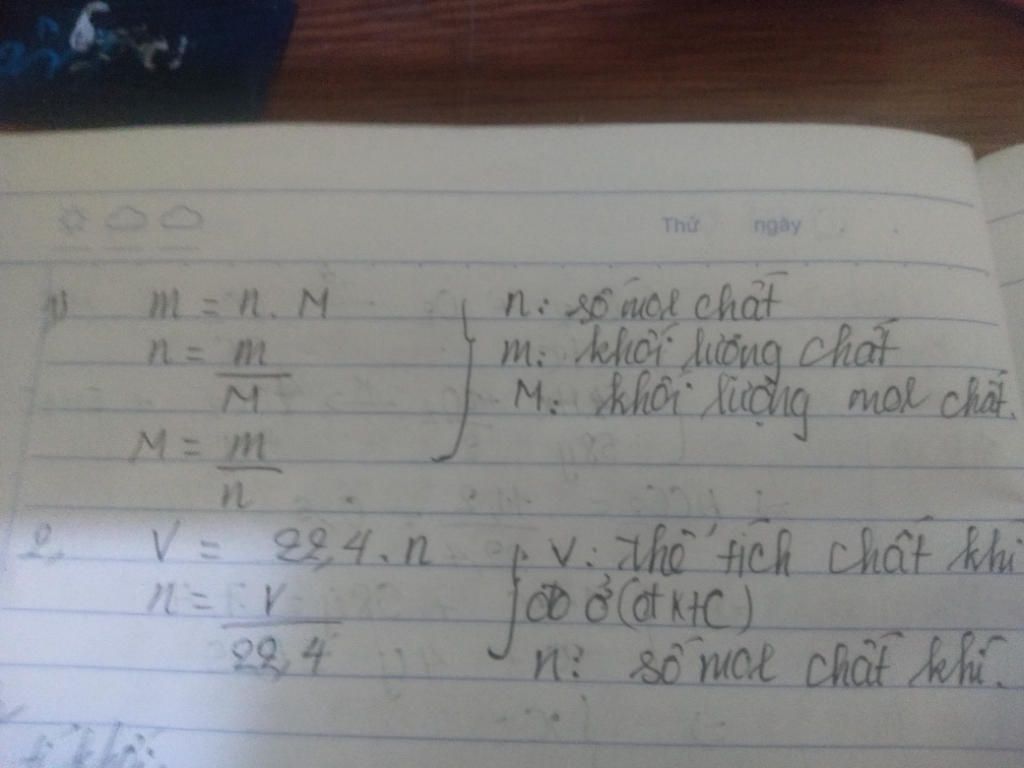 Thứ ngày
1) m = n. M n: số mol chất
n = m/M m: khối lượng chất
M: khối lượng mol chất.
M = m/n
2, V = 22,4. n V: thể tích chất khí
n = V/22,4 ở (đktc)
n: số mol chất khí.